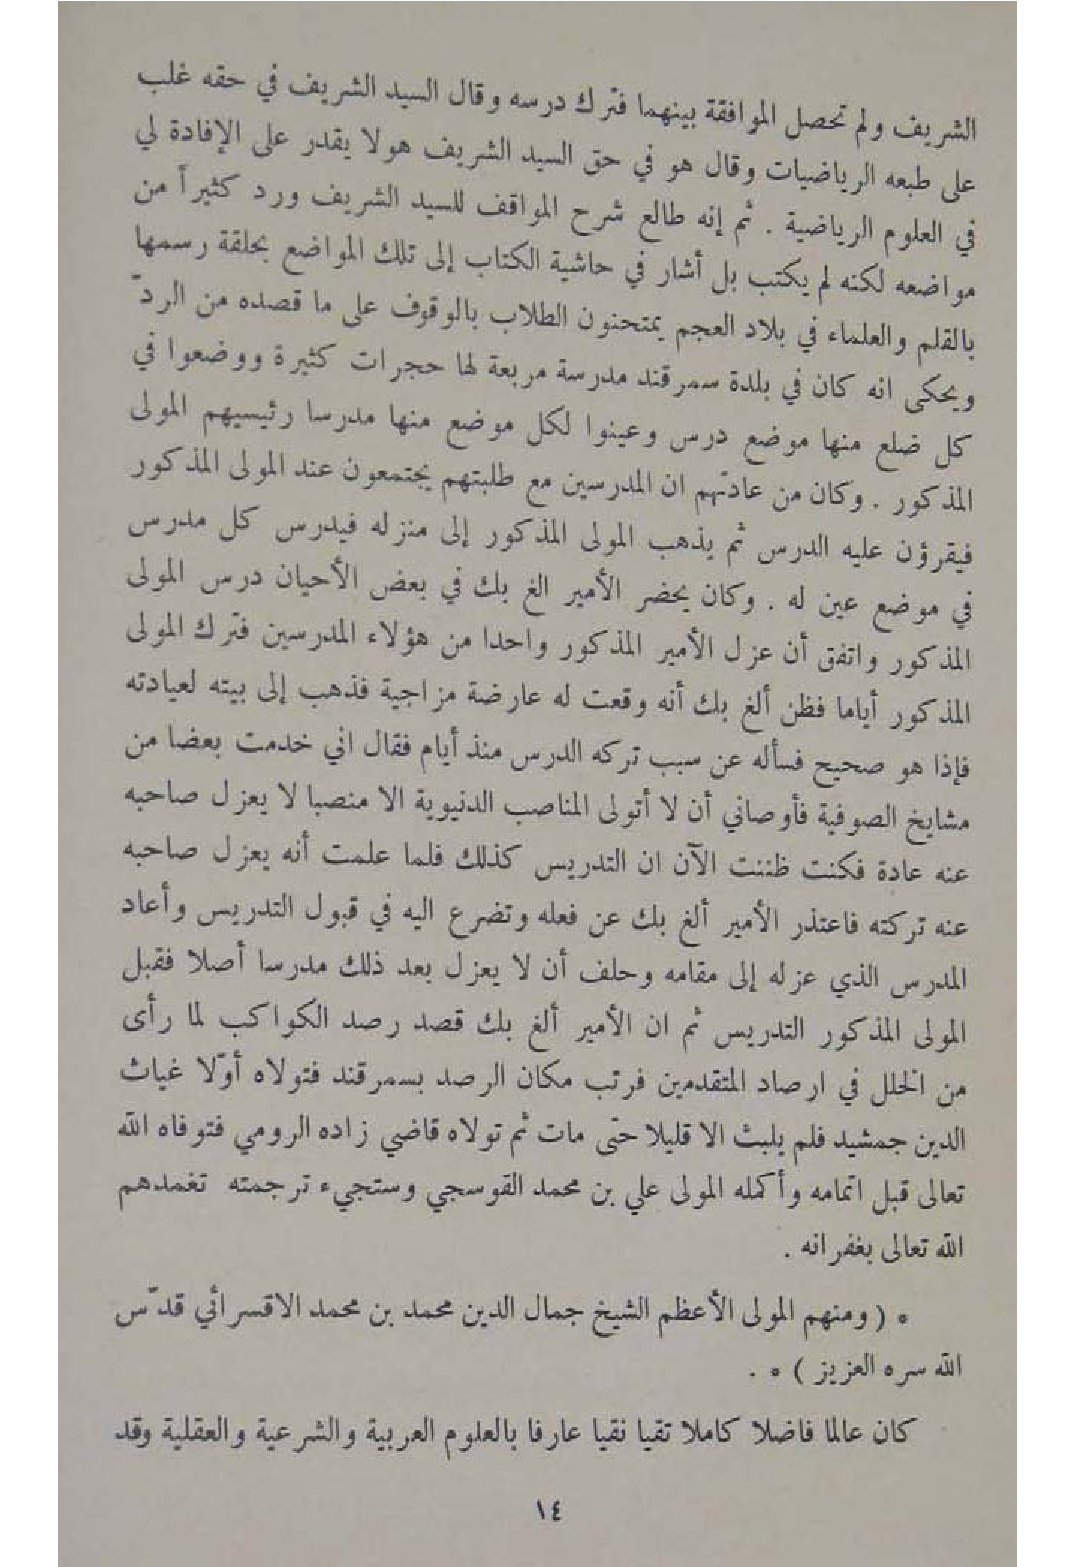 الشريف ولم تحصل الموافقة بينهما فترك درسه وقال السيد الشريف في حقه غلب
على طبعه الرياضيات وقال هو في حق السيد الشريف هولا يقدر على الإفادة لي
في العلوم الرياضية . ثم إنه طالع شرح المواقف للسيد الشريف ورد كثيراً من
مواضعه لكنه لم يكتب بل أشار في حاشية الكتاب إلى تلك المواضع بحلقة رسمها
بالقلم والعلماء في بلاد العجم يمتحنون الطلاب بالوقوف على ما قصده من الردّ
ويحكى انه كان في بلدة سمرقند مدرسة مربعة لها حجرات كثيرة ووضعوا في
كل ضلع منها موضع درس وعينوا لكل موضع منها مدرسا رئيسيهم المولى
المذكور . وكان من عادتهم ان المدرسين مع طلبتهم يجتمعون عند المولى المذكور
فيقرؤن عليه الدرس ثم يذهب المولى المذكور إلى منزله فيدرس كل مدرس
في موضع عين له . وكان يحضر الأمير الغ بك في بعض الأحيان درس المولى
المذكور واتفق أن عزل الأمير المذكور واحدا من هؤلاء المدرسين فترك المولى
المذكور أياما فظن ألغ بك أنه وقعت له عارضة مزاجية فذهب إلى بيته لعيادته
فإذا هو صحيح فسأله عن سبب تركه الدرس منذ أيام فقال اني خدمت بعضا من
مشايخ الصوفية فأوصاني أن لا أتولى المناصب الدنيوية الا منصبا لا يعزل صاحبه
عنه عادة فكنت ظننت الآن ان التدريس كذلك فلما علمت أنه يعزل صاحبه
عنه تركته فاعتذر الأمير ألغ بك عن فعله وتضرع اليه في قبول التدريس وأعاد
المدرس الذي عزله إلى مقامه وحلف أن لا يعزل بعد ذلك مدرسا أصلا فقبل
المولى المذكور التدريس ثم ان الأمير ألغ بك قصد رصد الكواكب لما رأى
من الخلل في ارصاد المتقدمين فرتب مكان الرصد بسمرقند فتولاه أوّلا غياث
الدين جمشيد فلم يلبث الا قليلا حتى مات ثم تولاه قاضي زاده الرومي فتوفاه الله
تعالى قبل اتمامه وأكمله المولى علي بن محمد القوسجي وستجيء ترجمته تغمدهم
الله تعالى بغفرانه .
* ( ومنهم المولى الأعظم الشيخ جمال الدين محمد بن محمد الاقسرائي قدّس
الله سره العزيز ) * .
كان عالما فاضلا كاملا تقيا نقيا عارفا بالعلوم العربية والشرعية والعقلية وقد
١٤